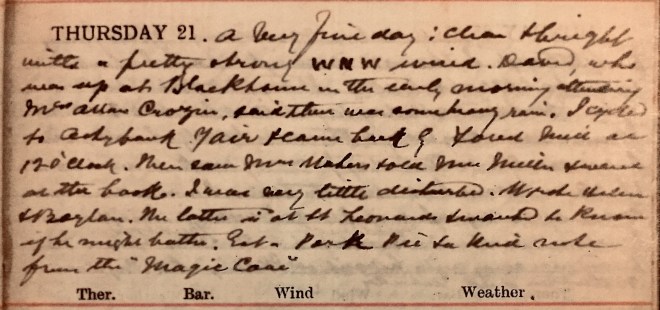 THURSDAY 21. A very fine day: clear & bright
with a pretty strong WNW wind. David, who
was up at Blackhouse in the early morning attending
Mrs Allan Crozier, said there was some heavy rain. I cycled
to Ashybank Fair & came back &
12 o'clock. Then saw Mrs old Mrs Miller &
at the books. I was very little disturbed. Wrote Helen
& Boylan. The latter is at St Leonards & wanted to know
if he might bathe. Eat a Pork Pie &
from the "Magic
Ther. Bar. Wind Weather.